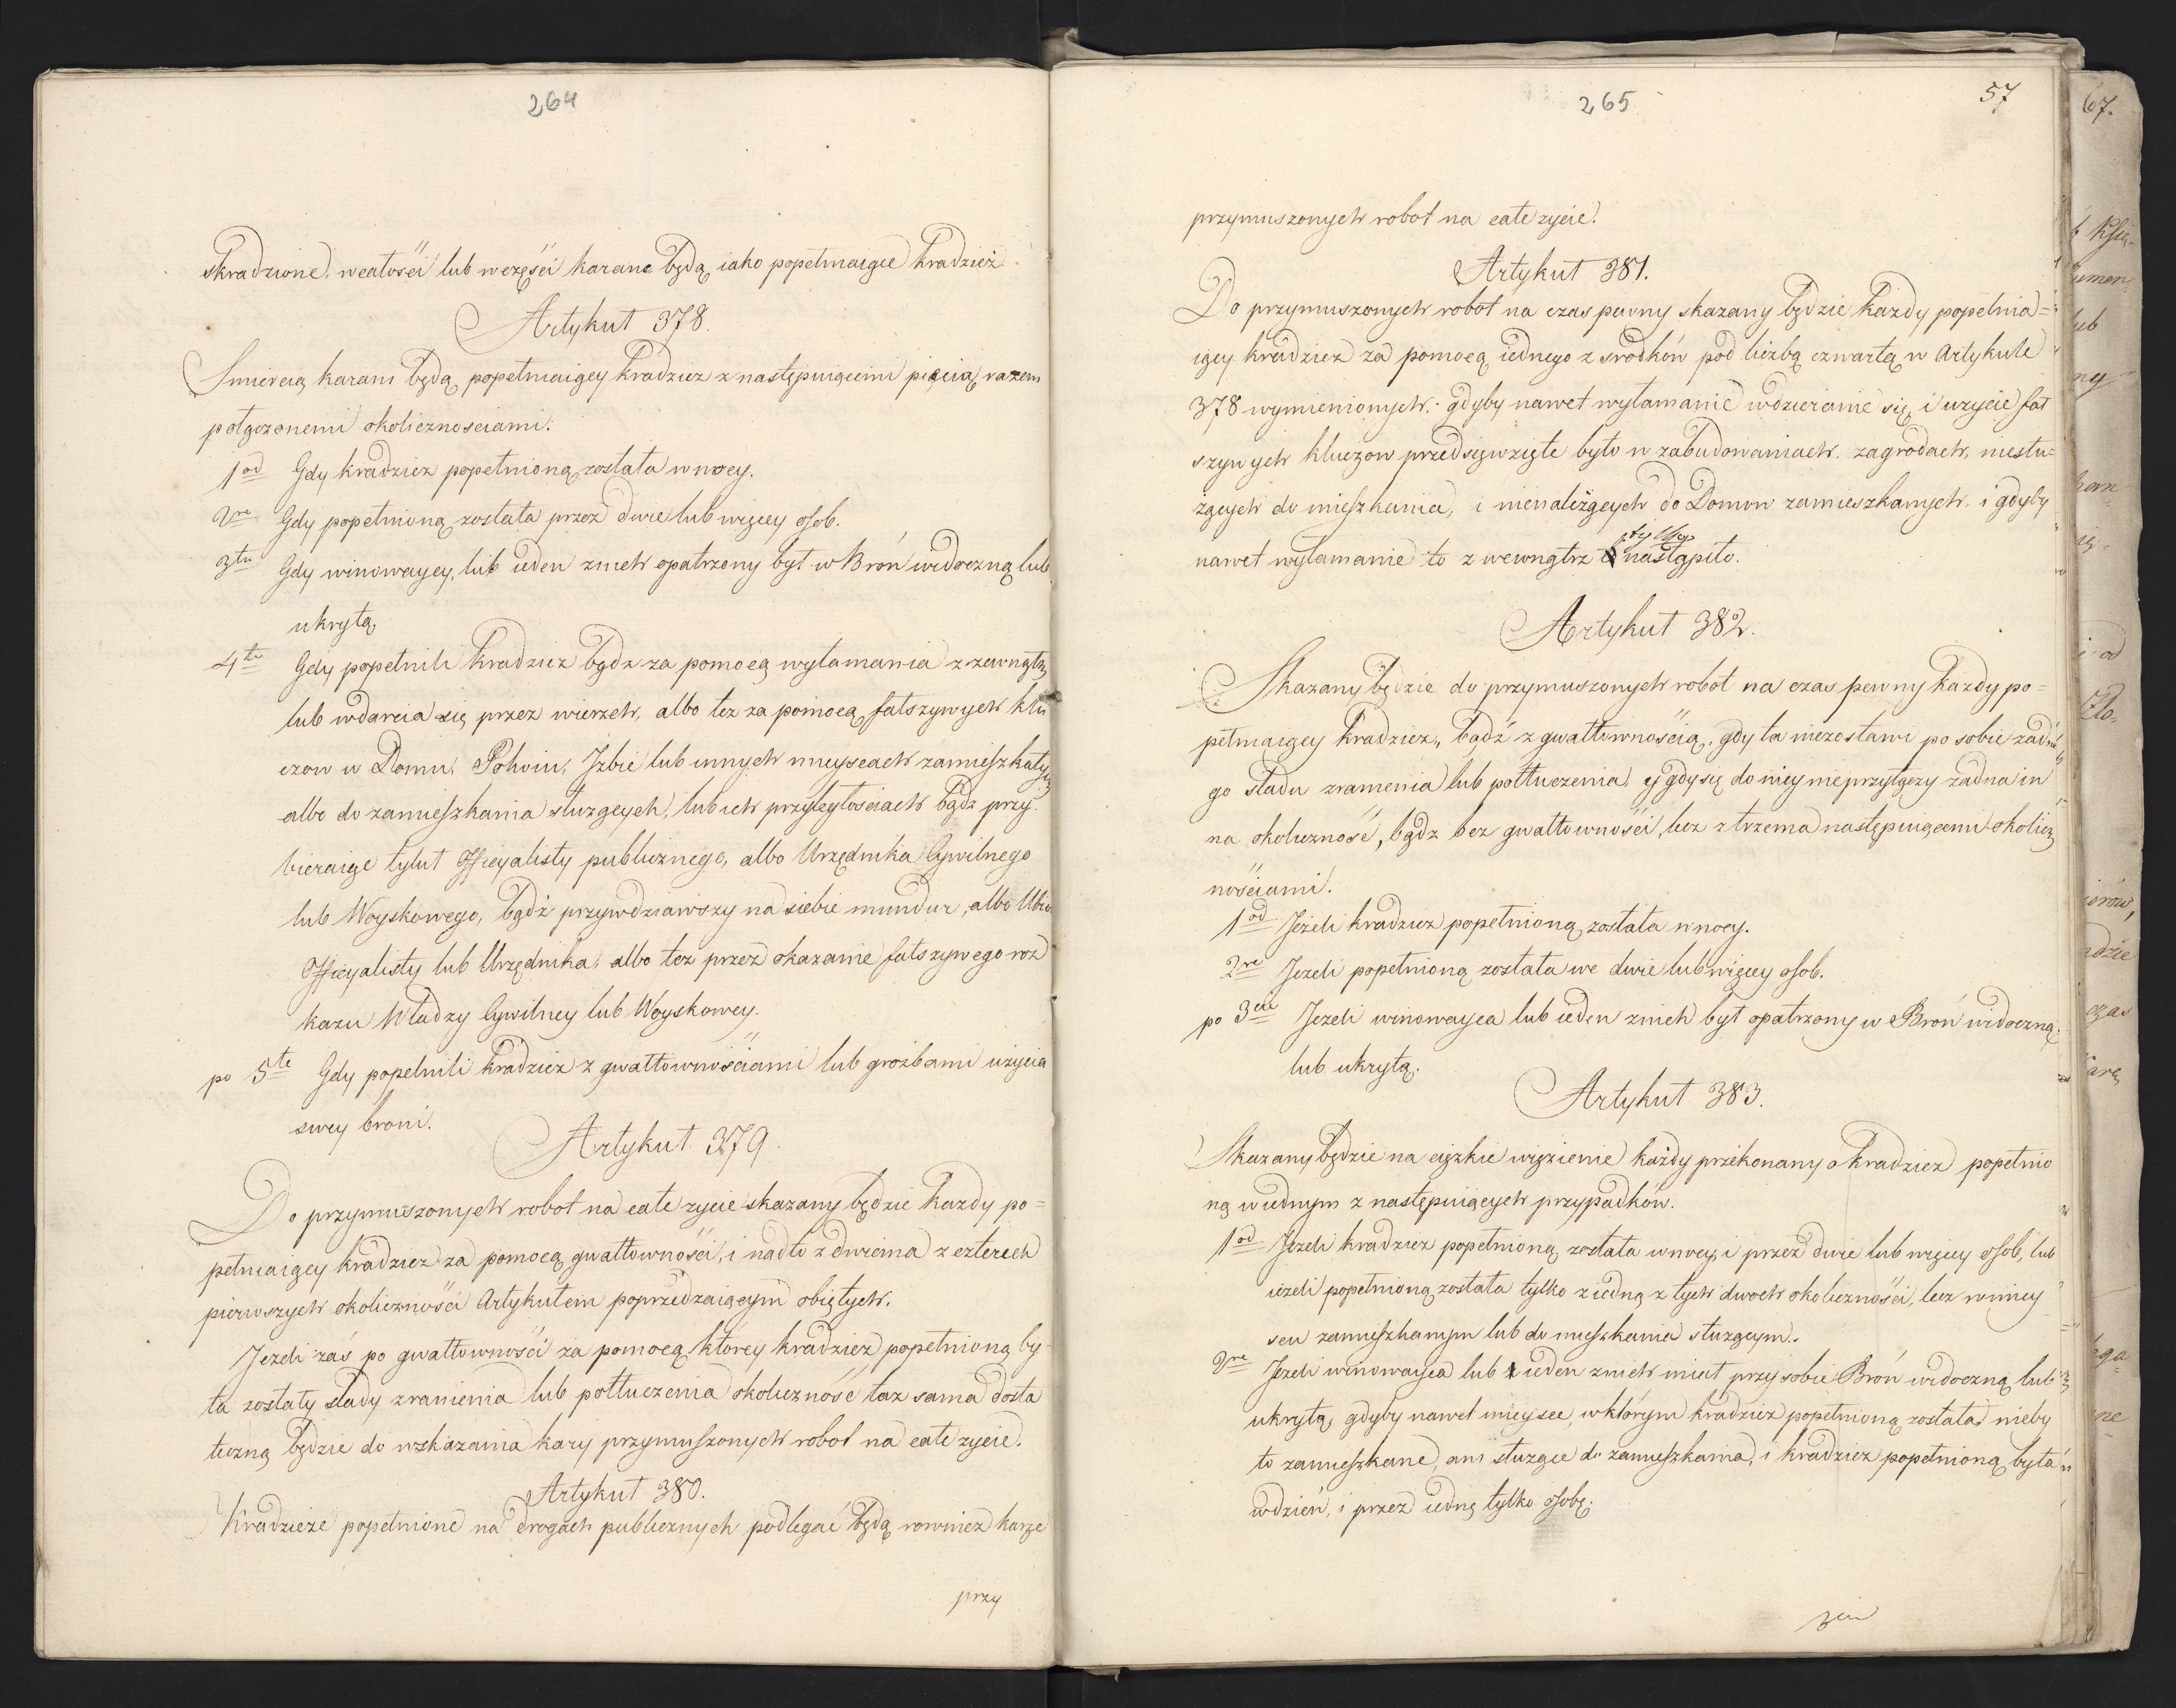 264
skradzione, wcałości lub wczęści karane będą iako popełniaiące kradzież.
Artykuł 378.
Smiercią karani będą popełniaiący kradziez z następuiącemi pięcią razem
połączonemi okolicznosciami.
1od Gdy kradziez popełnioną została w nocy.
2re Gdy popełnioną została przez dwie lub więcey osob.
3tn Gdy winowaycy, lub ieden znich opatrzony był w Broń widoczną lub
ukrytą
4te Gdy popełnili kradziez bądz za pomocą wyłamania z zewnątrz
lub wdarcia się przez wierzch, albo tez za pomocą fałszywych klu
czow w Domu, Pokoiu, Izbie lub innych mieyscach zamieszkałych
albo do zamieszkania służących, lub ich przyległościach bądz przy-
bieraiąc tytuł Officyalisty publicznego, albo Urzędnika Cywilnego
lub Woyskowego, bądź przywdziawszy na siebie mundur, albo Ubior
Officyalisty lub Urzędnika, albo tez przez okazanie fałszywego roz
kazu Władzy Cywilney lub Woyskowey.
po 5te Gdy popełnili kradziez z gwałtownościami lub groźbami użycia
swey broni.
Artykuł 379.
Do przymuszonych robot na całe zycie skazany będzie kazdy po=
pełniaiący kradziez za pomocą gwałtowności, i nadto z dwiema z czterech
pierwszych okoliczności Artykułem poprzedzaiącym obiętych.
Jezeli zaś po gwałtowności za pomocą którey kradziez popełnioną by-
ła zostały slady zranienia lub potłuczenia okoliczność taz sama dosta
teczną będzie do wskazania kary przymuszonych robot na całe zycie.
Artykuł 380.
Kradzieże popełnione na drogach publicznych podlegać będą rowniez karze
przy
265
57
przymuszonych robot na całe zycie.
Artykuł 381.
Do przymuszonych robot na czas pewny skazany będzie każdy popełnia=
iący kradziez za pomocą iednego z srodków pod liczbą czwartą w Artykule
378 wymienionych: gdyby nawet wyłamanie wdzieranie się i uzycie fał
szywych kluczow przedsięwzięte było w zabudowaniach, zagrodach, niesłu=
żących do mieszkania, i nienależących do Domow zamieszkanych, i gdyby
nawet wyłamanie to z wewnątrz tylko nastąpiło.
Artykuł 382.
Skazany będzie do przymuszonych robot na czas pewny kazdy po=
pełniaiący kradziez, bądź z gwałtownością, gdy ta niezostawi po sobie żadne
go sladu zranienia lub potłuczenia, y gdy się do niey nieprzyłączy żadna in
na okoliczność, bądz bez gwałtowności, lecz z trzema następuiącemi okolicz
nościami.
1od Jeżeli kradziez popełnioną została w nocy.
2re Jezeli popełnioną została we dwie lub więcey osob.
po 3cie Jezeli winowayca lub ieden znich był opatrzony w Broń widoczną
lub ukrytą.
Artykuł 383.
Skazany będzie na ciężkie więzienie każdy przekonany o kradziez popełnio
ną w iednym z następuiących przypadków.
1od Jezeli kradziez popełnioną została w nocy, i przez dwie lub więcey osob, lub
iezeli popełnioną została tylko z iedną z tych dwoch okoliczności, lecz wmiey
scu zamieszkanym lub do mieszkania służącym.
2re Jezeli winowayca lub ieden znich miał przy sobie Broń widoczną lub
ukrytą, gdyby nawet mieysce, wktórym kradziez popełnioną została, nieby
ło zamieszkane, ani służące do zamieszkania, i kradziez popełnioną była
wdzień, i przez iedną tylko osobę.
67.